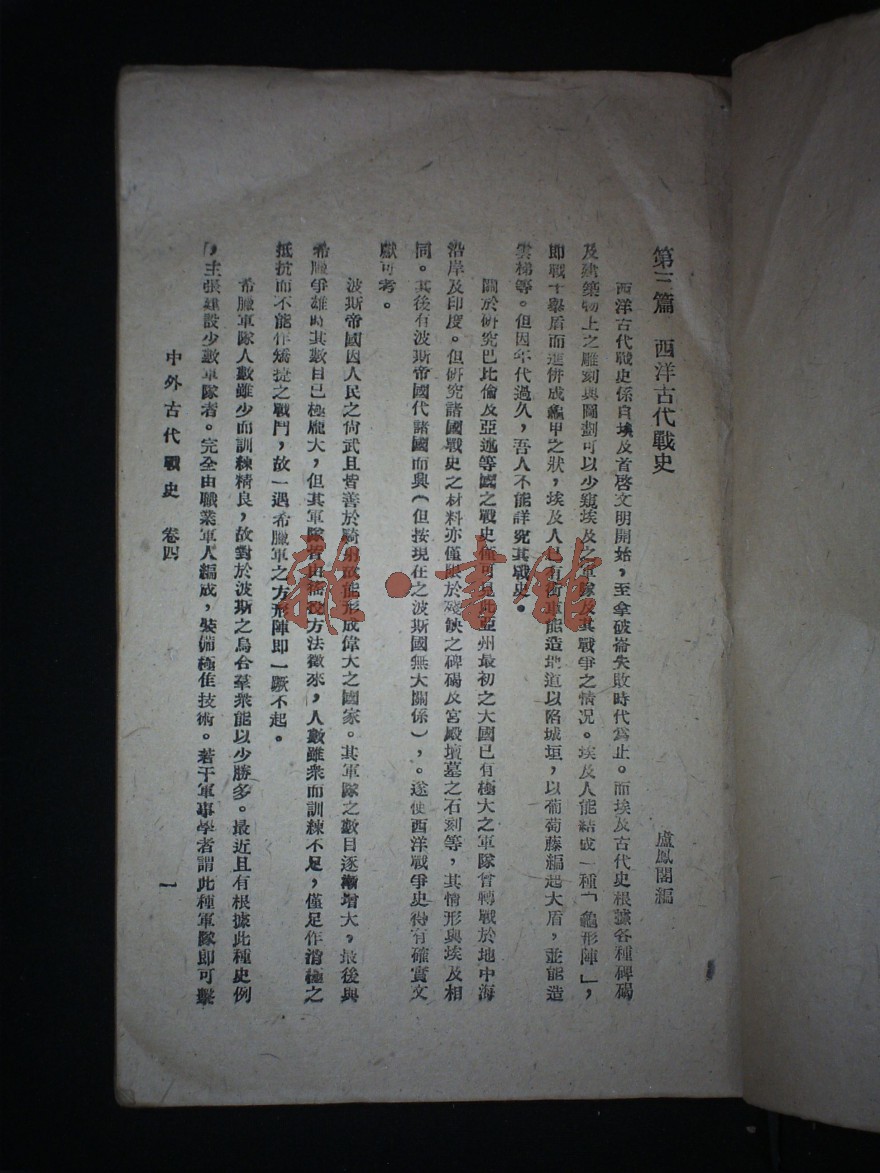 第三篇　西洋古代戰史
盧鳳閣編
西洋古代戰史係自埃及首啓文明開始，至拿破崙失敗時代爲止。而埃及古代史根據各種碑碣
及建築物上之雕刻與圖劃可以少窺埃及之軍隊及其戰爭之情况。埃及人能結成一種「龜形陣」，
即戰士舉盾而進併成龜甲之狀，埃及人已有衝軍能造地道以陷城垣，以葡萄藤編起大盾，並能造
雲梯等。但因年代過久，吾人不能詳究其戰史。
關於研究巴比倫及亞述等國之戰史僅可見此亞州最初之大國已有極大之軍隊曾轉戰於地中海
沿岸及印度。但研究諸國戰史之材料亦僅限於殘缺之碑碣及宮殿墳墓之石刻等，其情形與埃及相
同。其後有波斯帝國代諸國而興（但按現在之波斯國無大關係），。遂使西洋戰爭史得有確實文
獻可考。
波斯帝國因人民之尙武且皆善於騎射故能形成偉大之國家。其軍隊之數目逐漸增大，最後與
希臘爭雄時其數目已極龐大，但其軍隊皆由徭役方法徵來，人數雖衆而訓練不足，僅足作消極之
抵抗而不能作矯捷之戰鬥，故一遇希臘軍之方形陣即一蹶不起。
希臘軍隊人數雖少而訓練精良，故對於波斯之烏合羣衆能以少勝多。最近且有根據此種史例
，主張建設少數軍隊者。完全由職業軍人編成，裝備極佳技術。若干軍事學者謂此種軍隊即可擊
中外古代戰史　卷四
一
龍·書館